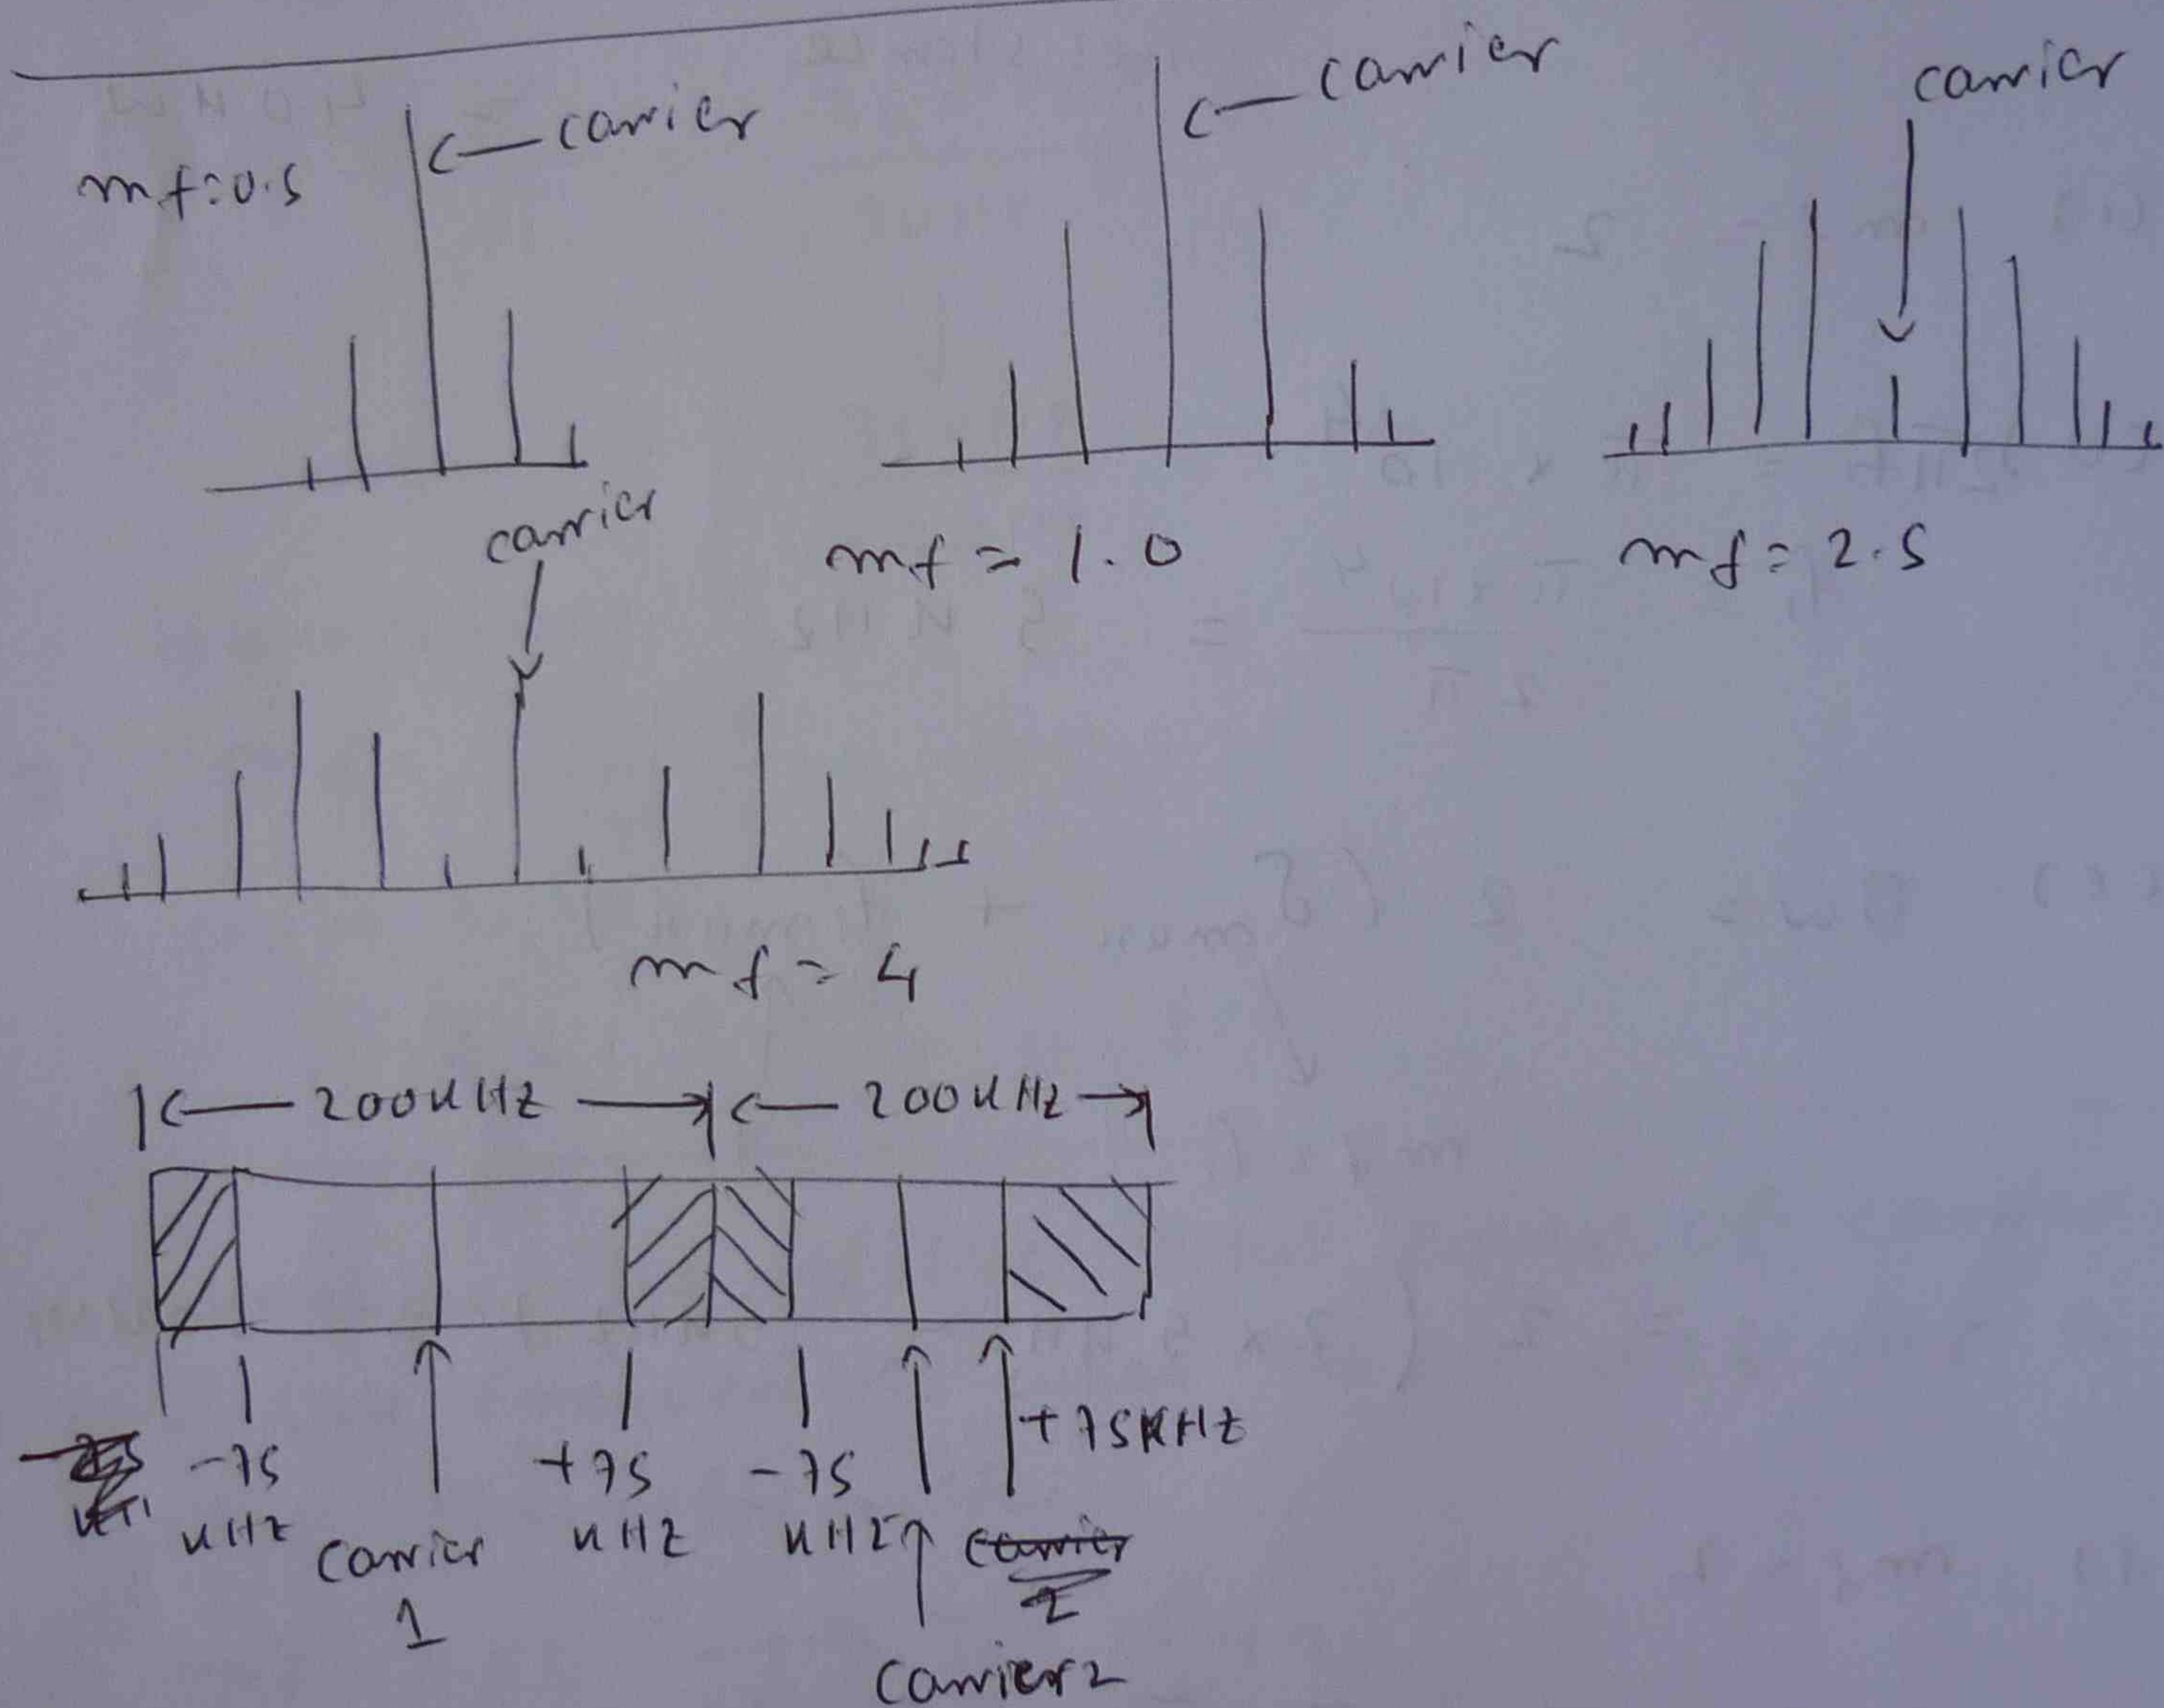 carrier
carrier
carrier
mf=0.5
mf = 1.0
mf = 2.5
carrier
mf = 4
200KHz
200KHz
-75 KHz
carrier 1
+75 KHz
-75 KHz
+75KHz
carrier 2
carrier 2